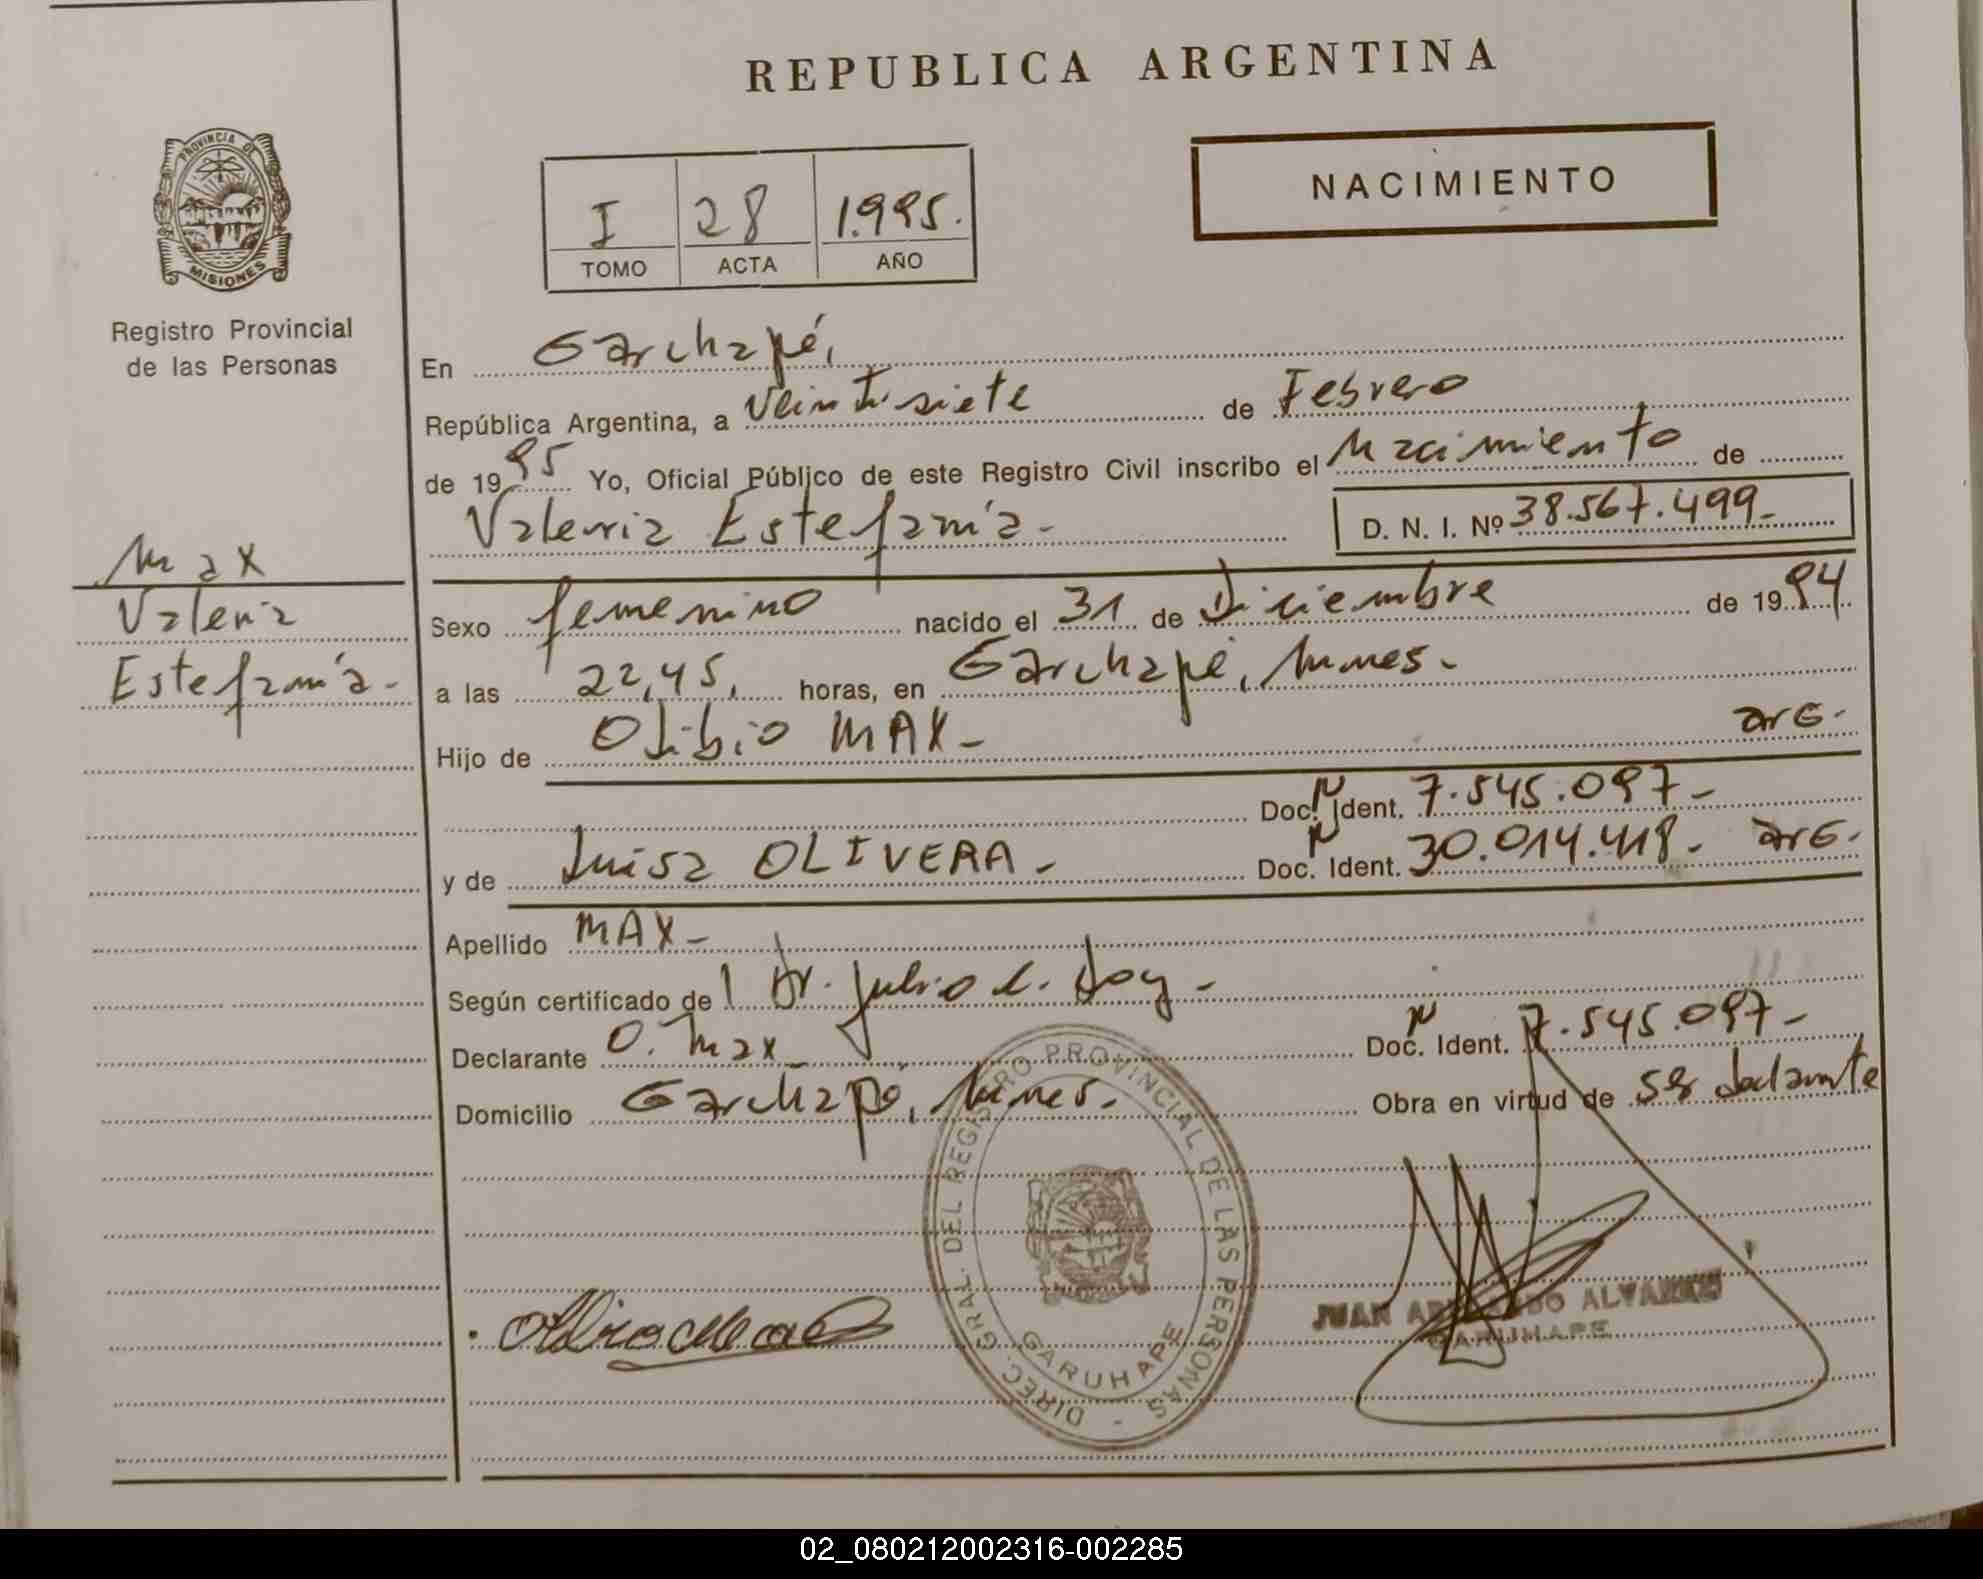 REPUBLICA ARGENTINA
PROVINCIA DE
MISIONES
Registro Provincial
de las Personas
NACIMIENTO
I 28 1.995.
TOMO ACTA AÑO
Max
Valeria
Estefanía.-
En Garuhapé,
República Argentina, a Veintisiete de Febrero
de 1995 Yo, Oficial Público de este Registro Civil inscribo el Nacimiento de
Valeria Estefanía.- D. N. I. Nº 38.567.499-
Sexo femenino nacido el 31 de Diciembre de 1994
a las 22,45, horas, en Garuhapé, Mnes.
Hijo de Olibio MAX- arG.
Doc. Ident. 7.545.097-
y de Luisa OLIVERA.- Doc. Ident. 30.014.418- arG.
Apellido MAX-
Según certificado de Dr. Julio C.
Declarante O. Max- Doc. Ident. 7.545.097-
Domicilio Garuhapé, Mnes. Obra en virtud de ser declarante
DIREC. GRAL. DEL REGISTRO PROVINCIAL DE LAS PERSONAS -
GARUHAPE
JUAN ALVAREZ
GARUHAPE
02_080212002316-002285